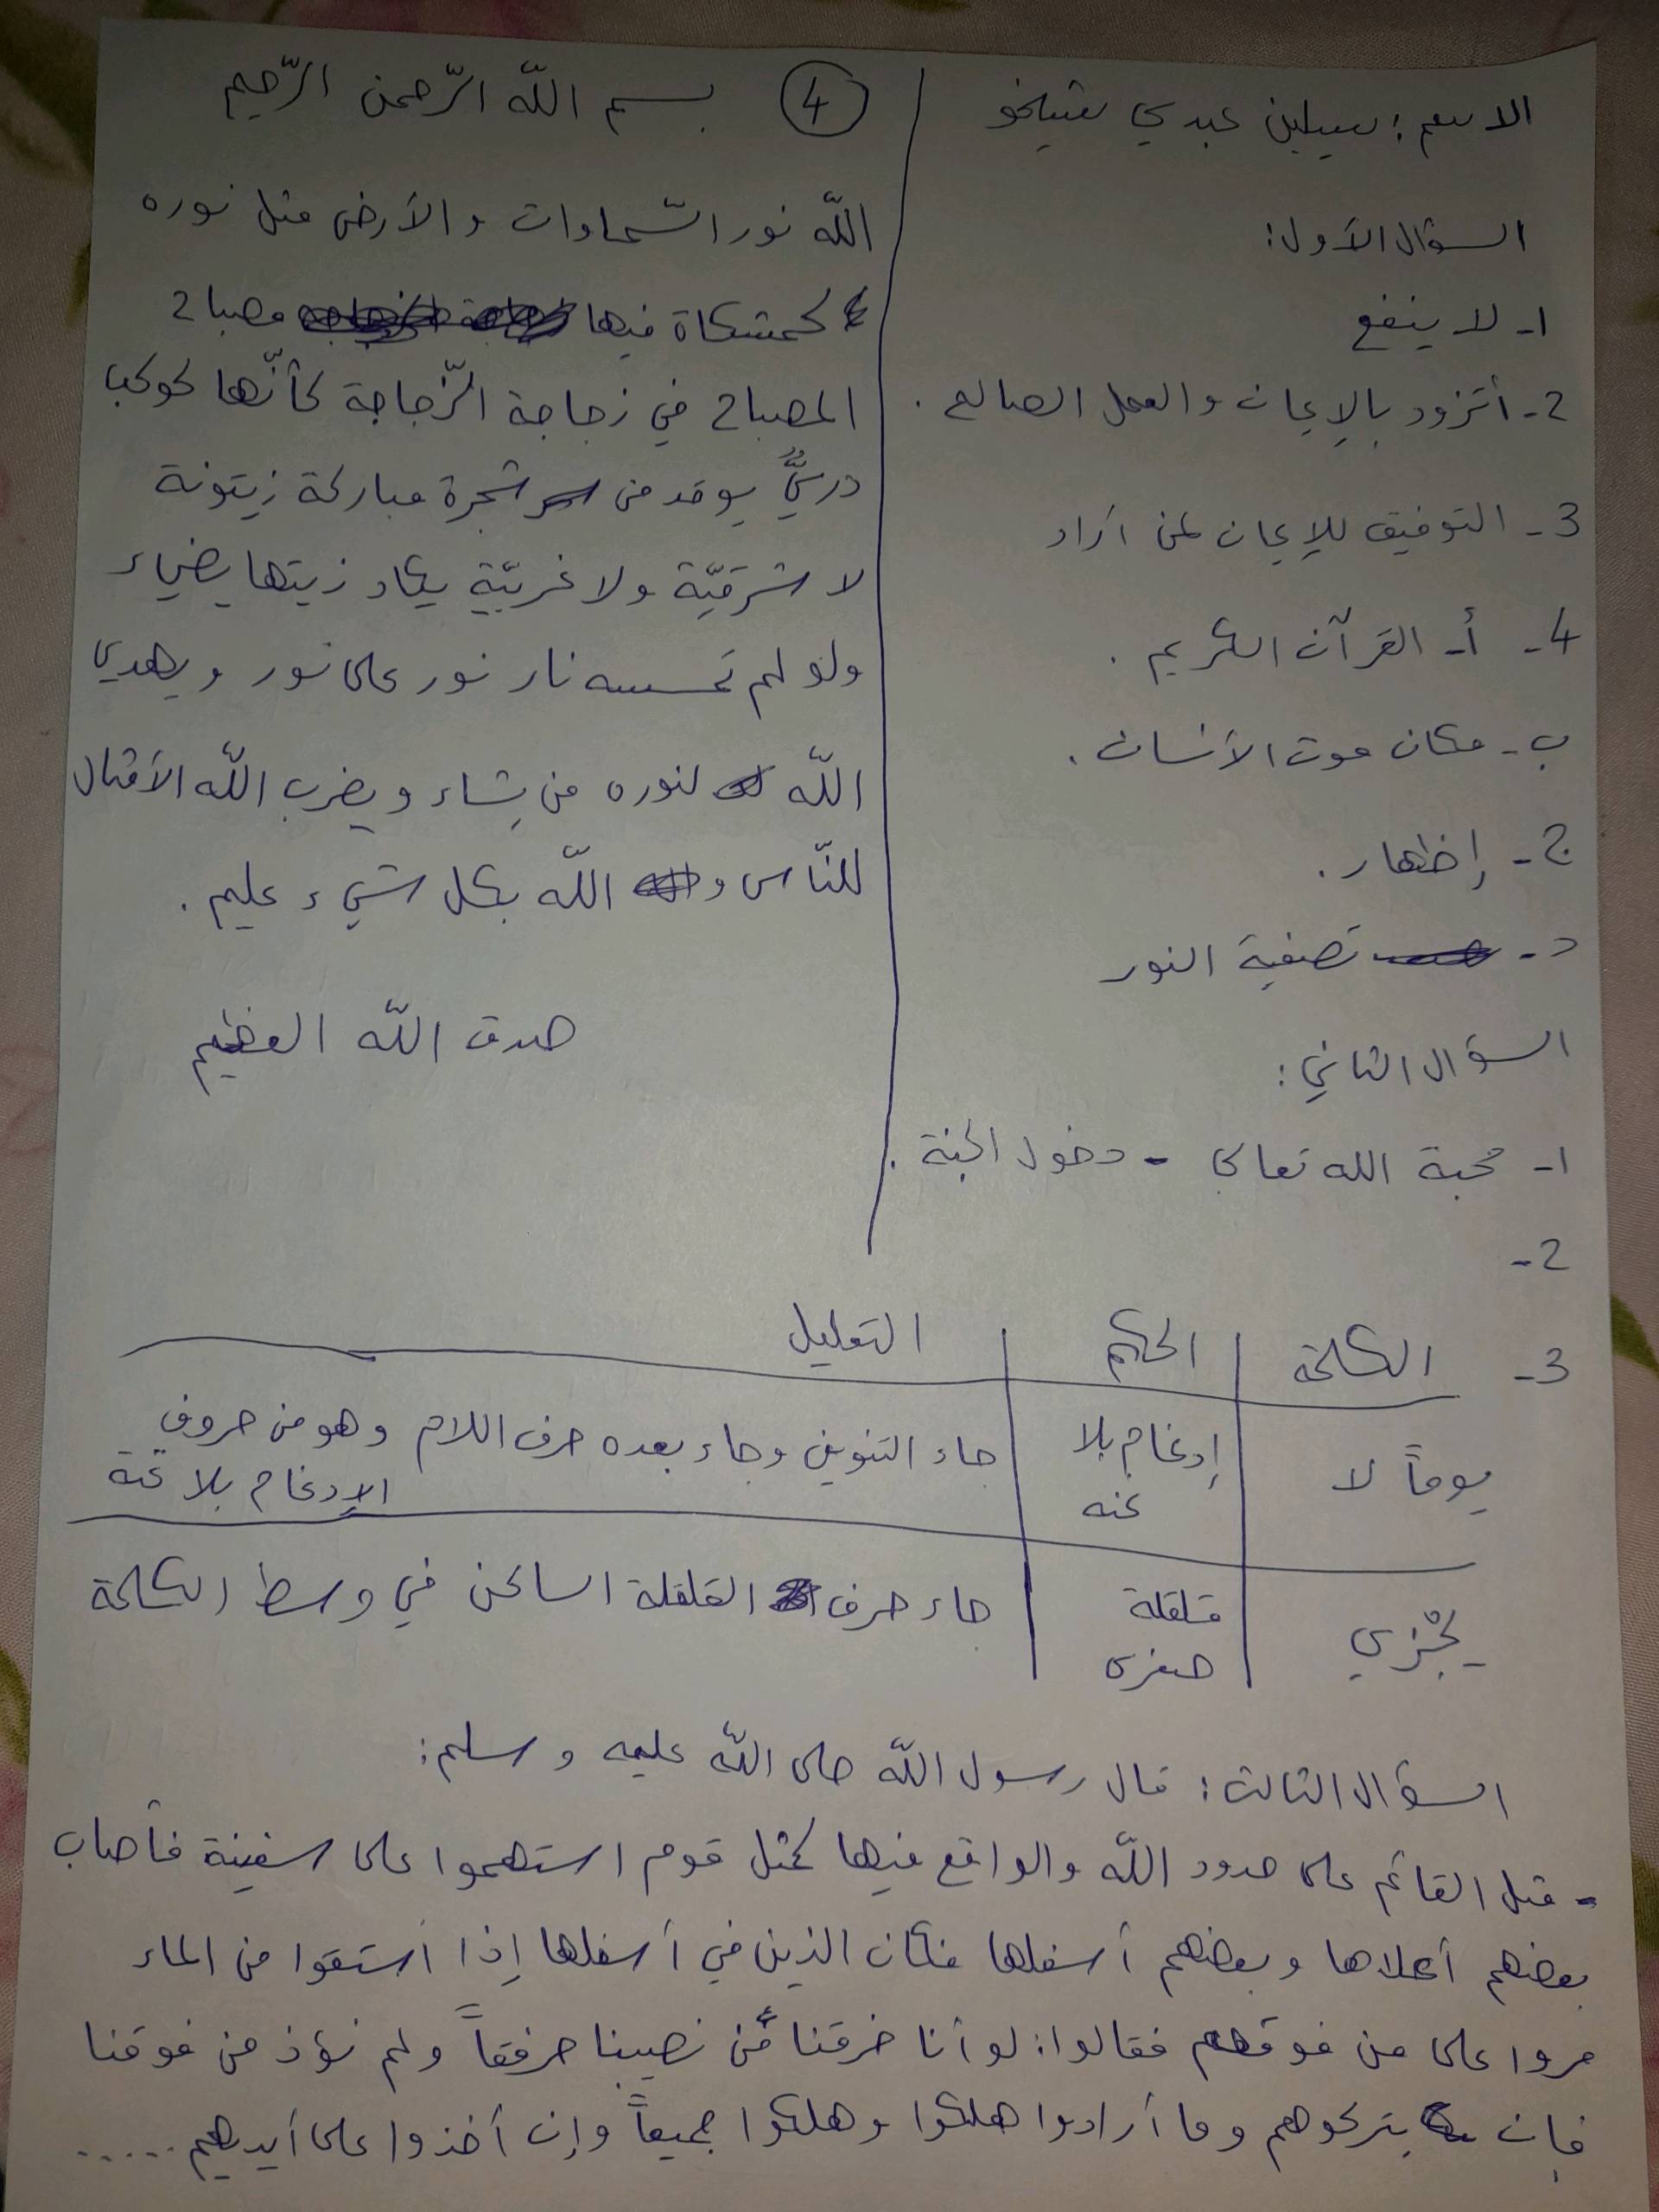 الاسم: سيلين عبدي شيخو
السؤال الأول:
1- لا ينفع
2- أتزود بالإيمان والعمل الصالح.
3- التوفيق للإيمان لمن أراد
4- أ- القرآن الكريم.
ب- مكان موت الأنسان.
ج- إظهار.
د- تصفية النور
السؤال الثاني:
1- محبة الله تعالى - دخول الجنة.
2-
3- الكلمة | الحكم | التعليل
يوماً لا | إدغام بلا غنه | جاء التنوين وجاء بعده حرف اللام وهو من حروف
الإدغام بلا غنة
يجْزي | قلقلة صغرى | جاء حرف القلقلة الساكن في وسط الكلمة
④ بسم اللّه الرّحمن الرّحيم
اللّه نور السّماوات والأرض مثل نوره
كمشكاة فيها مصباح
المصباح في زجاجة الزّجاجة كأنّها كوكب
دريٌّ يوقد من شجرة مباركة زيتونة
لا شرقيّة ولا غربيّة يكاد زيتها يضيء
ولو لم تمسسه نار نور على نور ويهدي
اللّه لنوره من يشاء ويضرب اللّه الأمثال
للنّاس و اللّه بكل شيء عليم.
صدق اللّه العظيم
السؤال الثالث: قال رسول اللّه صلى اللّه عليه وسلم:
- مثل القائم على حدود اللّه والواقع فيها كمثل قوم استهموا على سفينة فأصاب
بعضهم أعلاها وبعضهم أسفلها فكان الذين في أسفلها إذا استقوا من الماء
مروا على من فوقهم فقالوا: لو أنا خرقنا من نصيبنا خرقاً ولم نؤذ من فوقنا
فإن يتركوهم وما أرادوا هلكوا وهلكوا جميعاً وإن أخذوا على أيديهم .....